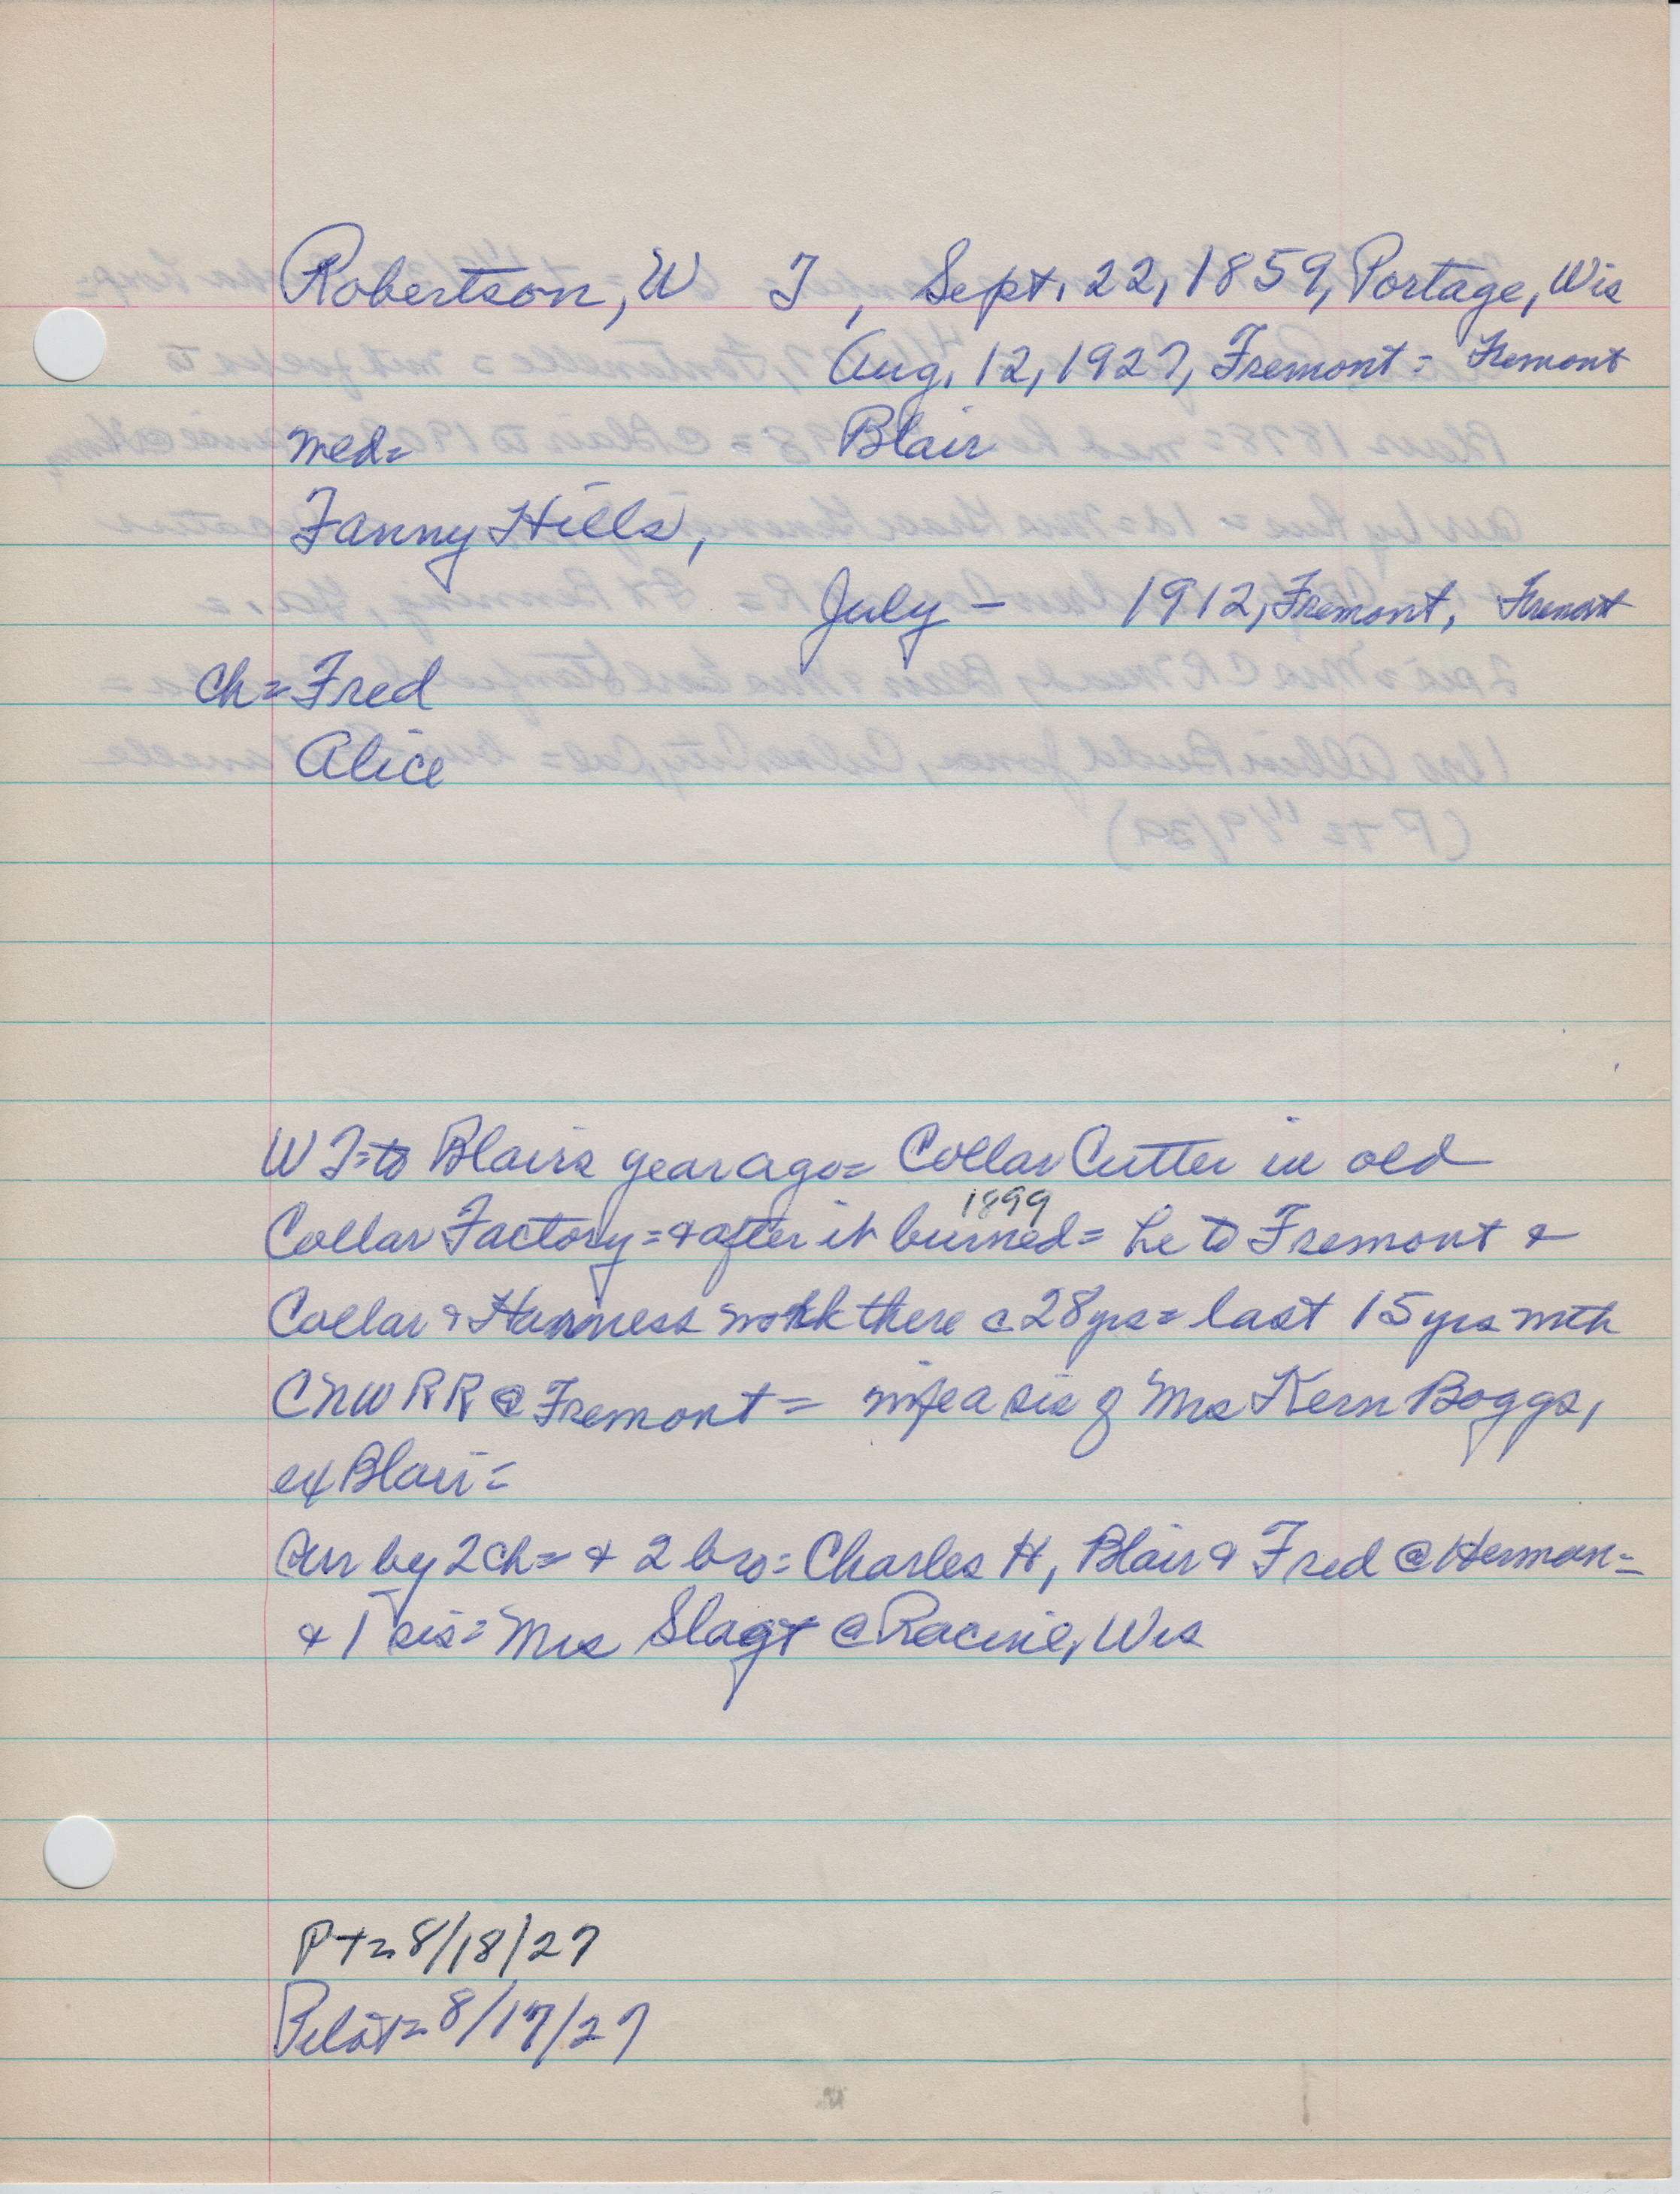 Robertson, W T, Sept. 22, 1859, Portage, Wis
Aug. 12, 1927, Fremont = Fremont
med= Blair
Fanny Hills,
July - 1912, Fremont, Fremont
Ch= Fred
Alice
W T= to Blairs year ago= Collar Cutter in old
1899
Collar Factory= & after it burned= he to Fremont &
Collar & Harness work there c 28 yrs= last 15 yrs with
CNW RR @ Fremont= wife a sis of Mrs Kern Boggs,
ex Blair=
Sur by 2 ch= & 2 bro= Charles H, Blair & Fred @ Herman=
& 1 sis= Mrs Slagt @ Racine, Wis
PT= 8/18/27
Pilot= 8/17/27